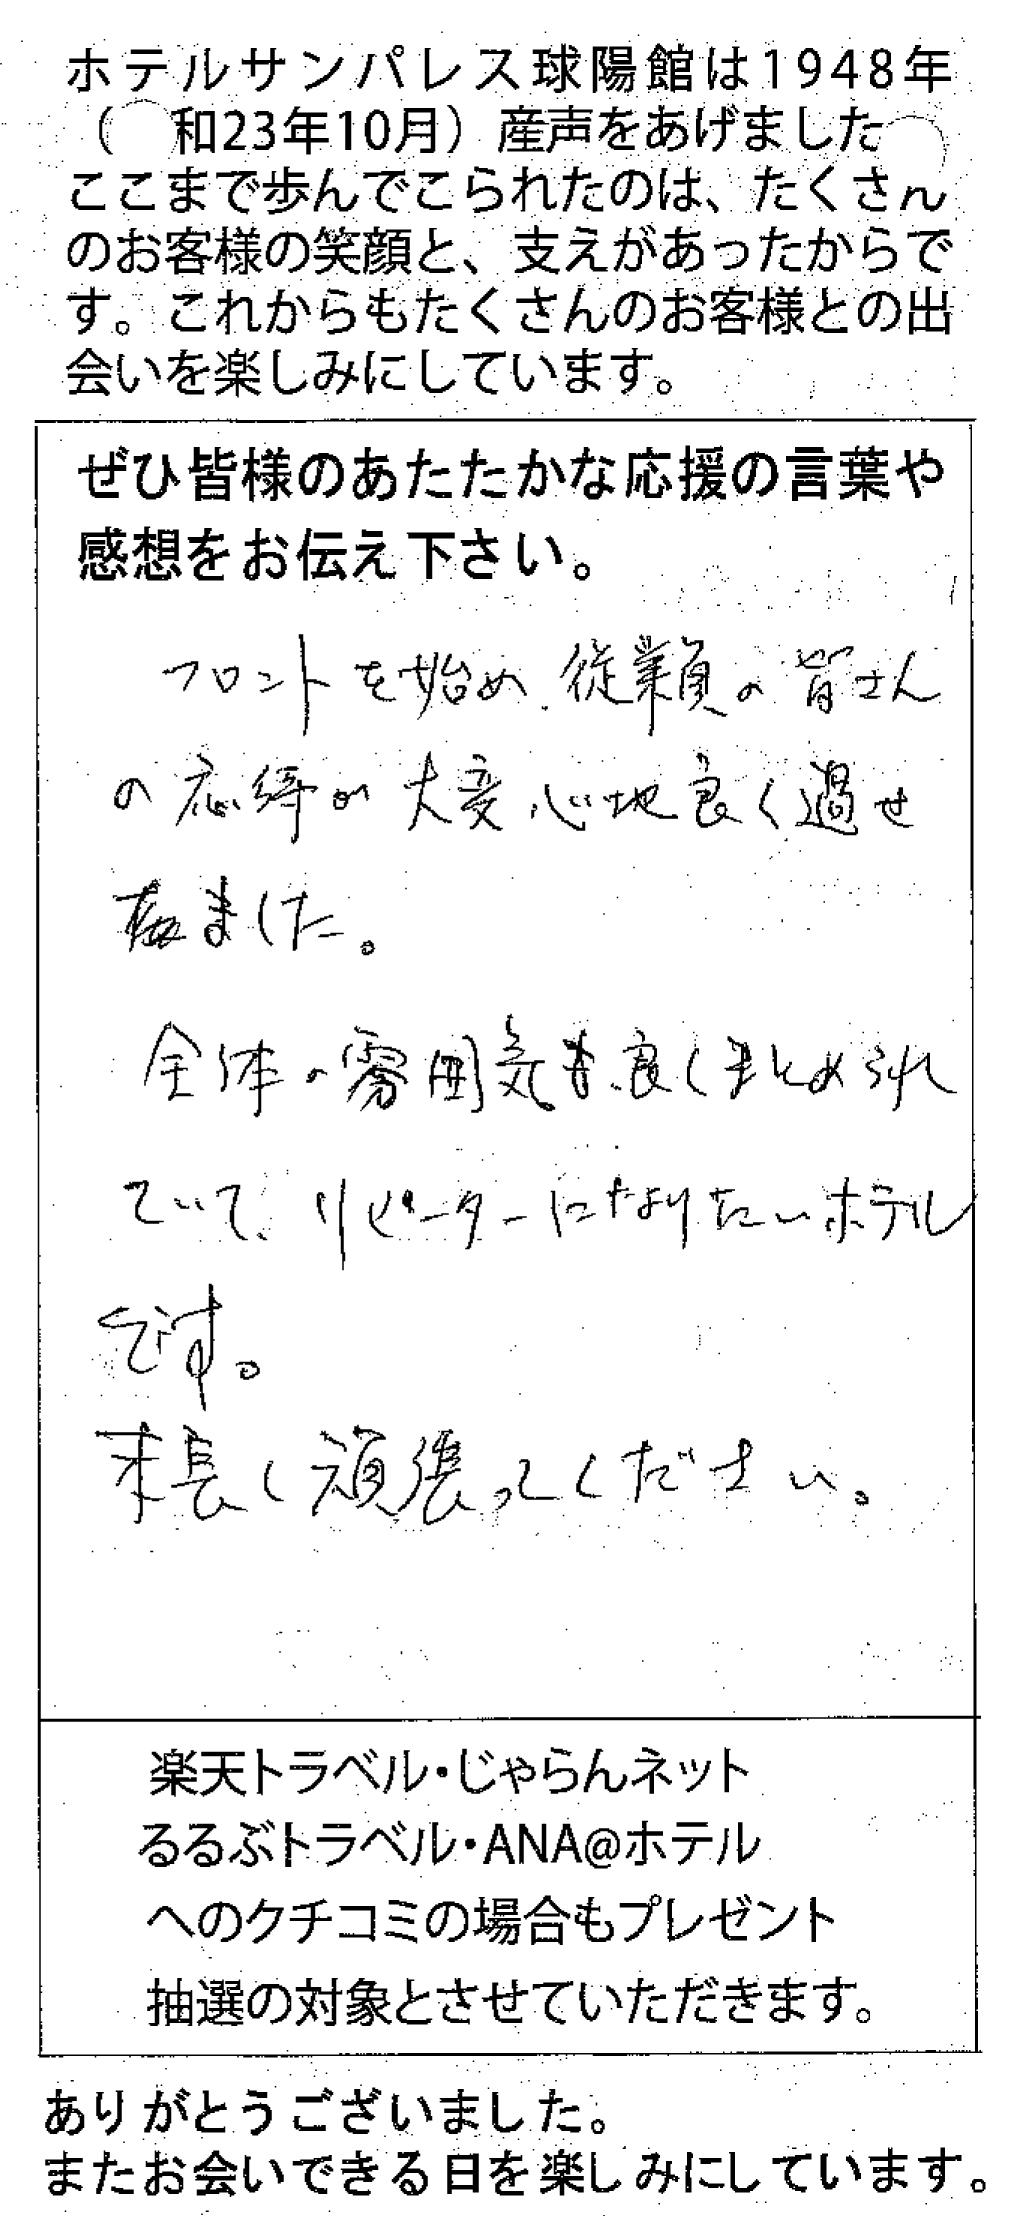 ホテルサンパレス球陽館は1948年
（　和23年10月）産声をあげました
ここまで歩んでこられたのは、たくさん
のお客様の笑顔と、支えがあったからで
す。これからもたくさんのお客様との出
会いを楽しみにしています。
ぜひ皆様のあたたかな応援の言葉や
感想をお伝え下さい。
フロントを始め、従業員の皆さん
の応待が大変心地良く過せ
ました。
全体の雰囲気も良くまとめられ
ていて、リピーターになりたいホテル
です。
末長く頑張ってください。
楽天トラベル・じゃらんネット
るるぶトラベル・ANA@ホテル
へのクチコミの場合もプレゼント
抽選の対象とさせていただきます。
ありがとうございました。
またお会いできる日を楽しみにしています。